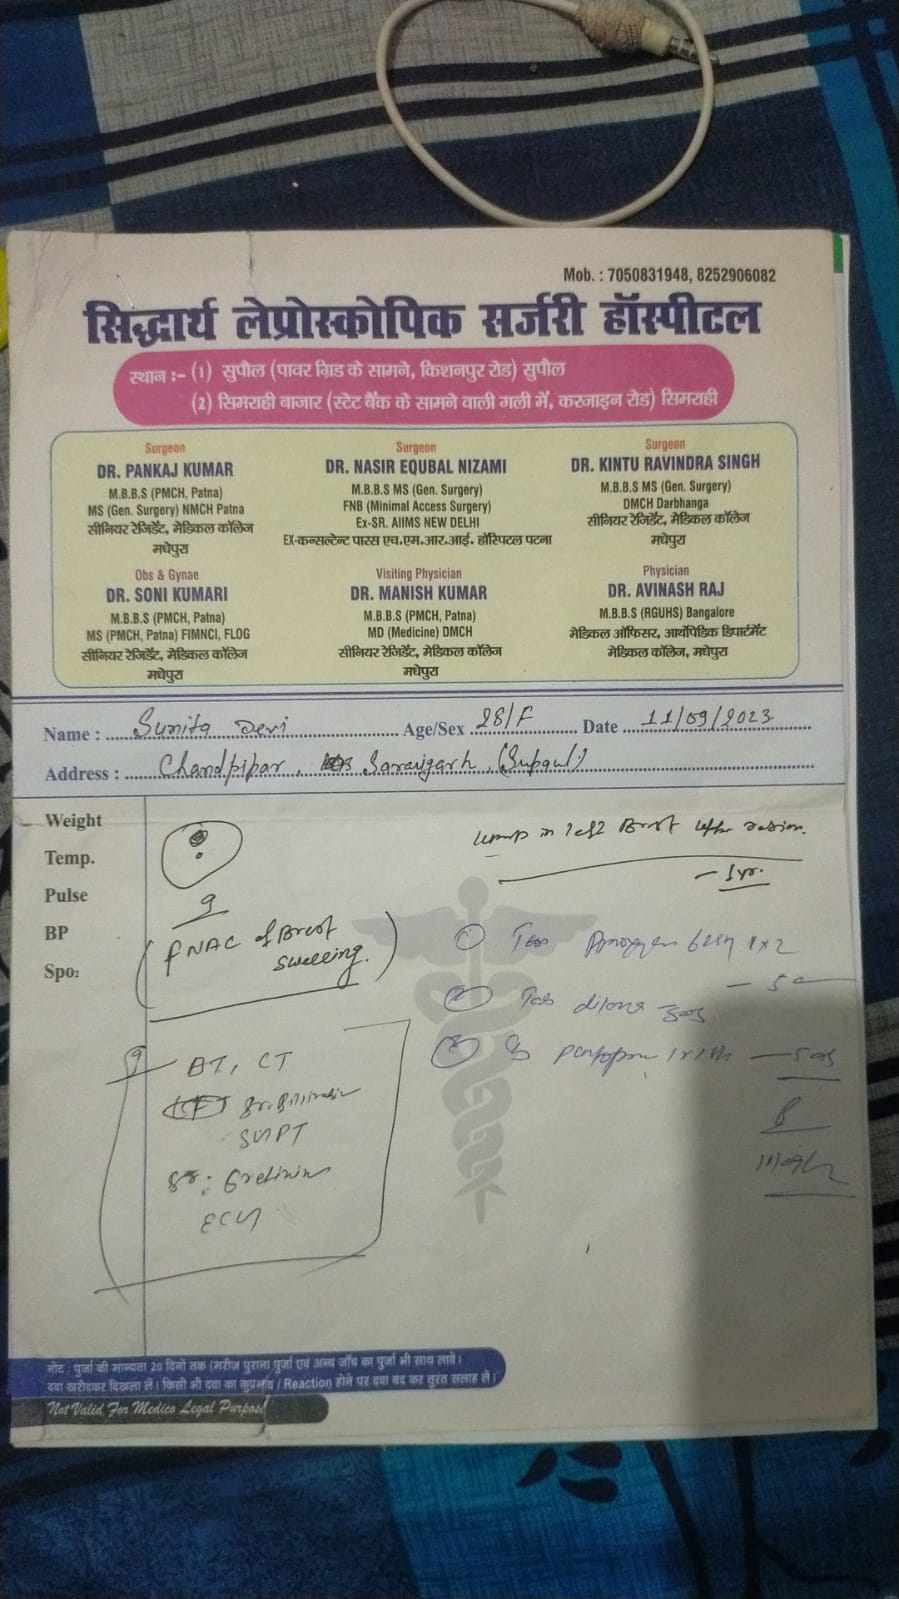 Mob. : 7050831948, 8252906082
सिद्धार्थ लेप्रोस्कोपिक सर्जरी हॉस्पीटल
स्थान :- (1) सुपौल (पावर ग्रिड के सामने, किशनपुर रोड) सुपौल
(2) सिमराही बाजार (स्टेट बैंक के सामने वाली गली में, करजाइन रोड) सिमराही
Surgeon
DR. PANKAJ KUMAR
M.B.B.S (PMCH, Patna)
MS (Gen. Surgery) NMCH Patna
सीनियर रेजिडेंट, मेडिकल कॉलेज
मधेपुरा
Surgeon
DR. NASIR EQUBAL NIZAMI
M.B.B.S MS (Gen. Surgery)
FNB (Minimal Access Surgery)
Ex-SR. AIIMS NEW DELHI
EX-कन्सल्टेन्ट पारस एच.एम.आर.आई. हॉस्पिटल पटना
Surgeon
DR. KINTU RAVINDRA SINGH
M.B.B.S MS (Gen. Surgery)
DMCH Darbhanga
सीनियर रेजिडेंट, मेडिकल कॉलेज
मधेपुरा
Obs & Gynae
DR. SONI KUMARI
M.B.B.S (PMCH, Patna)
MS (PMCH, Patna) FIMNCI, FLOG
सीनियर रेजिडेंट, मेडिकल कॉलेज
मधेपुरा
Visiting Physician
DR. MANISH KUMAR
M.B.B.S (PMCH, Patna)
MD (Medicine) DMCH
सीनियर रेजिडेंट, मेडिकल कॉलेज
मधेपुरा
Physician
DR. AVINASH RAJ
M.B.B.S (RGUHS) Bangalore
मेडिकल ऑफिसर, आर्थोपेडिक डिपार्टमेंट
मेडिकल कॉलेज, मधेपुरा
Name : Sunita Devi Age/Sex 28/F Date 11/09/2023
Address : Chandpipar, Saraigarh, (Supaul)
Weight
Temp.
Pulse
BP
Spo₂
Lump in left Breast
- 1 yr.
FNAC of Breast
swelling.
BT, CT
SGPT
ECG
नोट : पुर्जा की मान्यता 20 दिनो तक (मरीज पुराना पुर्जा एवं अन्य जाँच का पुर्जा भी साथ लावे।
दवा खरीदकर दिखला ले। किसी भी दवा का कुप्रभाव / Reaction होने पर दवा बंद कर तुरत सलाह ले।
Not Valid For Medico Legal Purpose